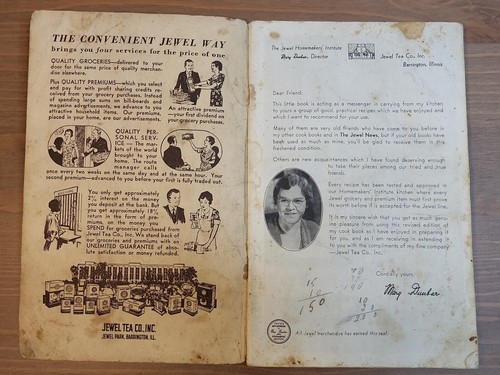 THE CONVENIENT JEWEL WAY
brings you four services for the price of one
QUALITY GROCERIES—delivered to your
door for the same price of quality merchan-
dise elsewhere.
Plus QUALITY PREMIUMS—which you select
and pay for with profit sharing credits re-
ceived from your grocery purchases. Instead
of spending large sums on bill-boards and
magazine advertisements, we advance to you
attractive household items. Our premiums,
placed in your home, are our advertisements.
An attractive premium
—your first dividend on
your grocery purchases.
QUALITY PER-
SONAL SERV-
ICE — The mar-
kets of the world
brought to your
home. The route
manager calls
once every two weeks on the same day and at the same hour. Your
second premium—advanced to you before your first is fully traded out.
You only get approximately
2½% interest on the money
you deposit at the bank. But
you get approximately 18%
return in the form of pre-
miums, on the money you
SPEND for groceries purchased from
Jewel Tea Co., Inc. We stand back of
our groceries and premiums with an
UNLIMITED GUARANTEE of abso-
lute satisfaction or money refunded.
JEWEL TEA CO., INC.
JEWEL PARK, BARRINGTON, ILL.
The Jewel Homemakers' Institute
Mary Dunbar, Director
Jewel Tea Co., Inc.
Barrington, Illinois
Dear Friend:
This little book is acting as a messenger in carrying from my kitchen
to yours a group of good, practical recipes which we have enjoyed and
which I want to recommend for your use.
Many of them are very old friends who have come to you before in
my other cook books and in The Jewel News, but if your old books have
been used as much as mine, you'll be glad to receive them in this
freshened condition.
Others are new acquaintances which I have found deserving enough
to take their places among our tried and true
friends.
Every recipe has been tested and approved in
our Homemakers' Institute kitchen where every
Jewel grocery and premium item must first prove
its worth before it is accepted for the Jewel line.
It is my sincere wish that you get as much genu-
ine pleasure from using this revised edition of
my cook book as I have enjoyed in preparing it
for you, and as I am receiving in extending it
to you with the compliments of my fine company
—Jewel Tea Co., Inc.
Cordially yours,
Mary Dunbar
15
10
150
All Jewel merchandise has earned this seal.